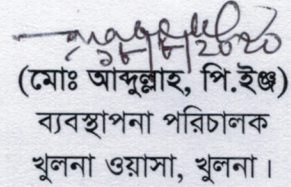 (মোঃ আব্দুল্লাহ, পি.ইঞ্জ)
ব্যবস্থাপনা পরিচালক
খুলনা ওয়াসা, খুলনা।